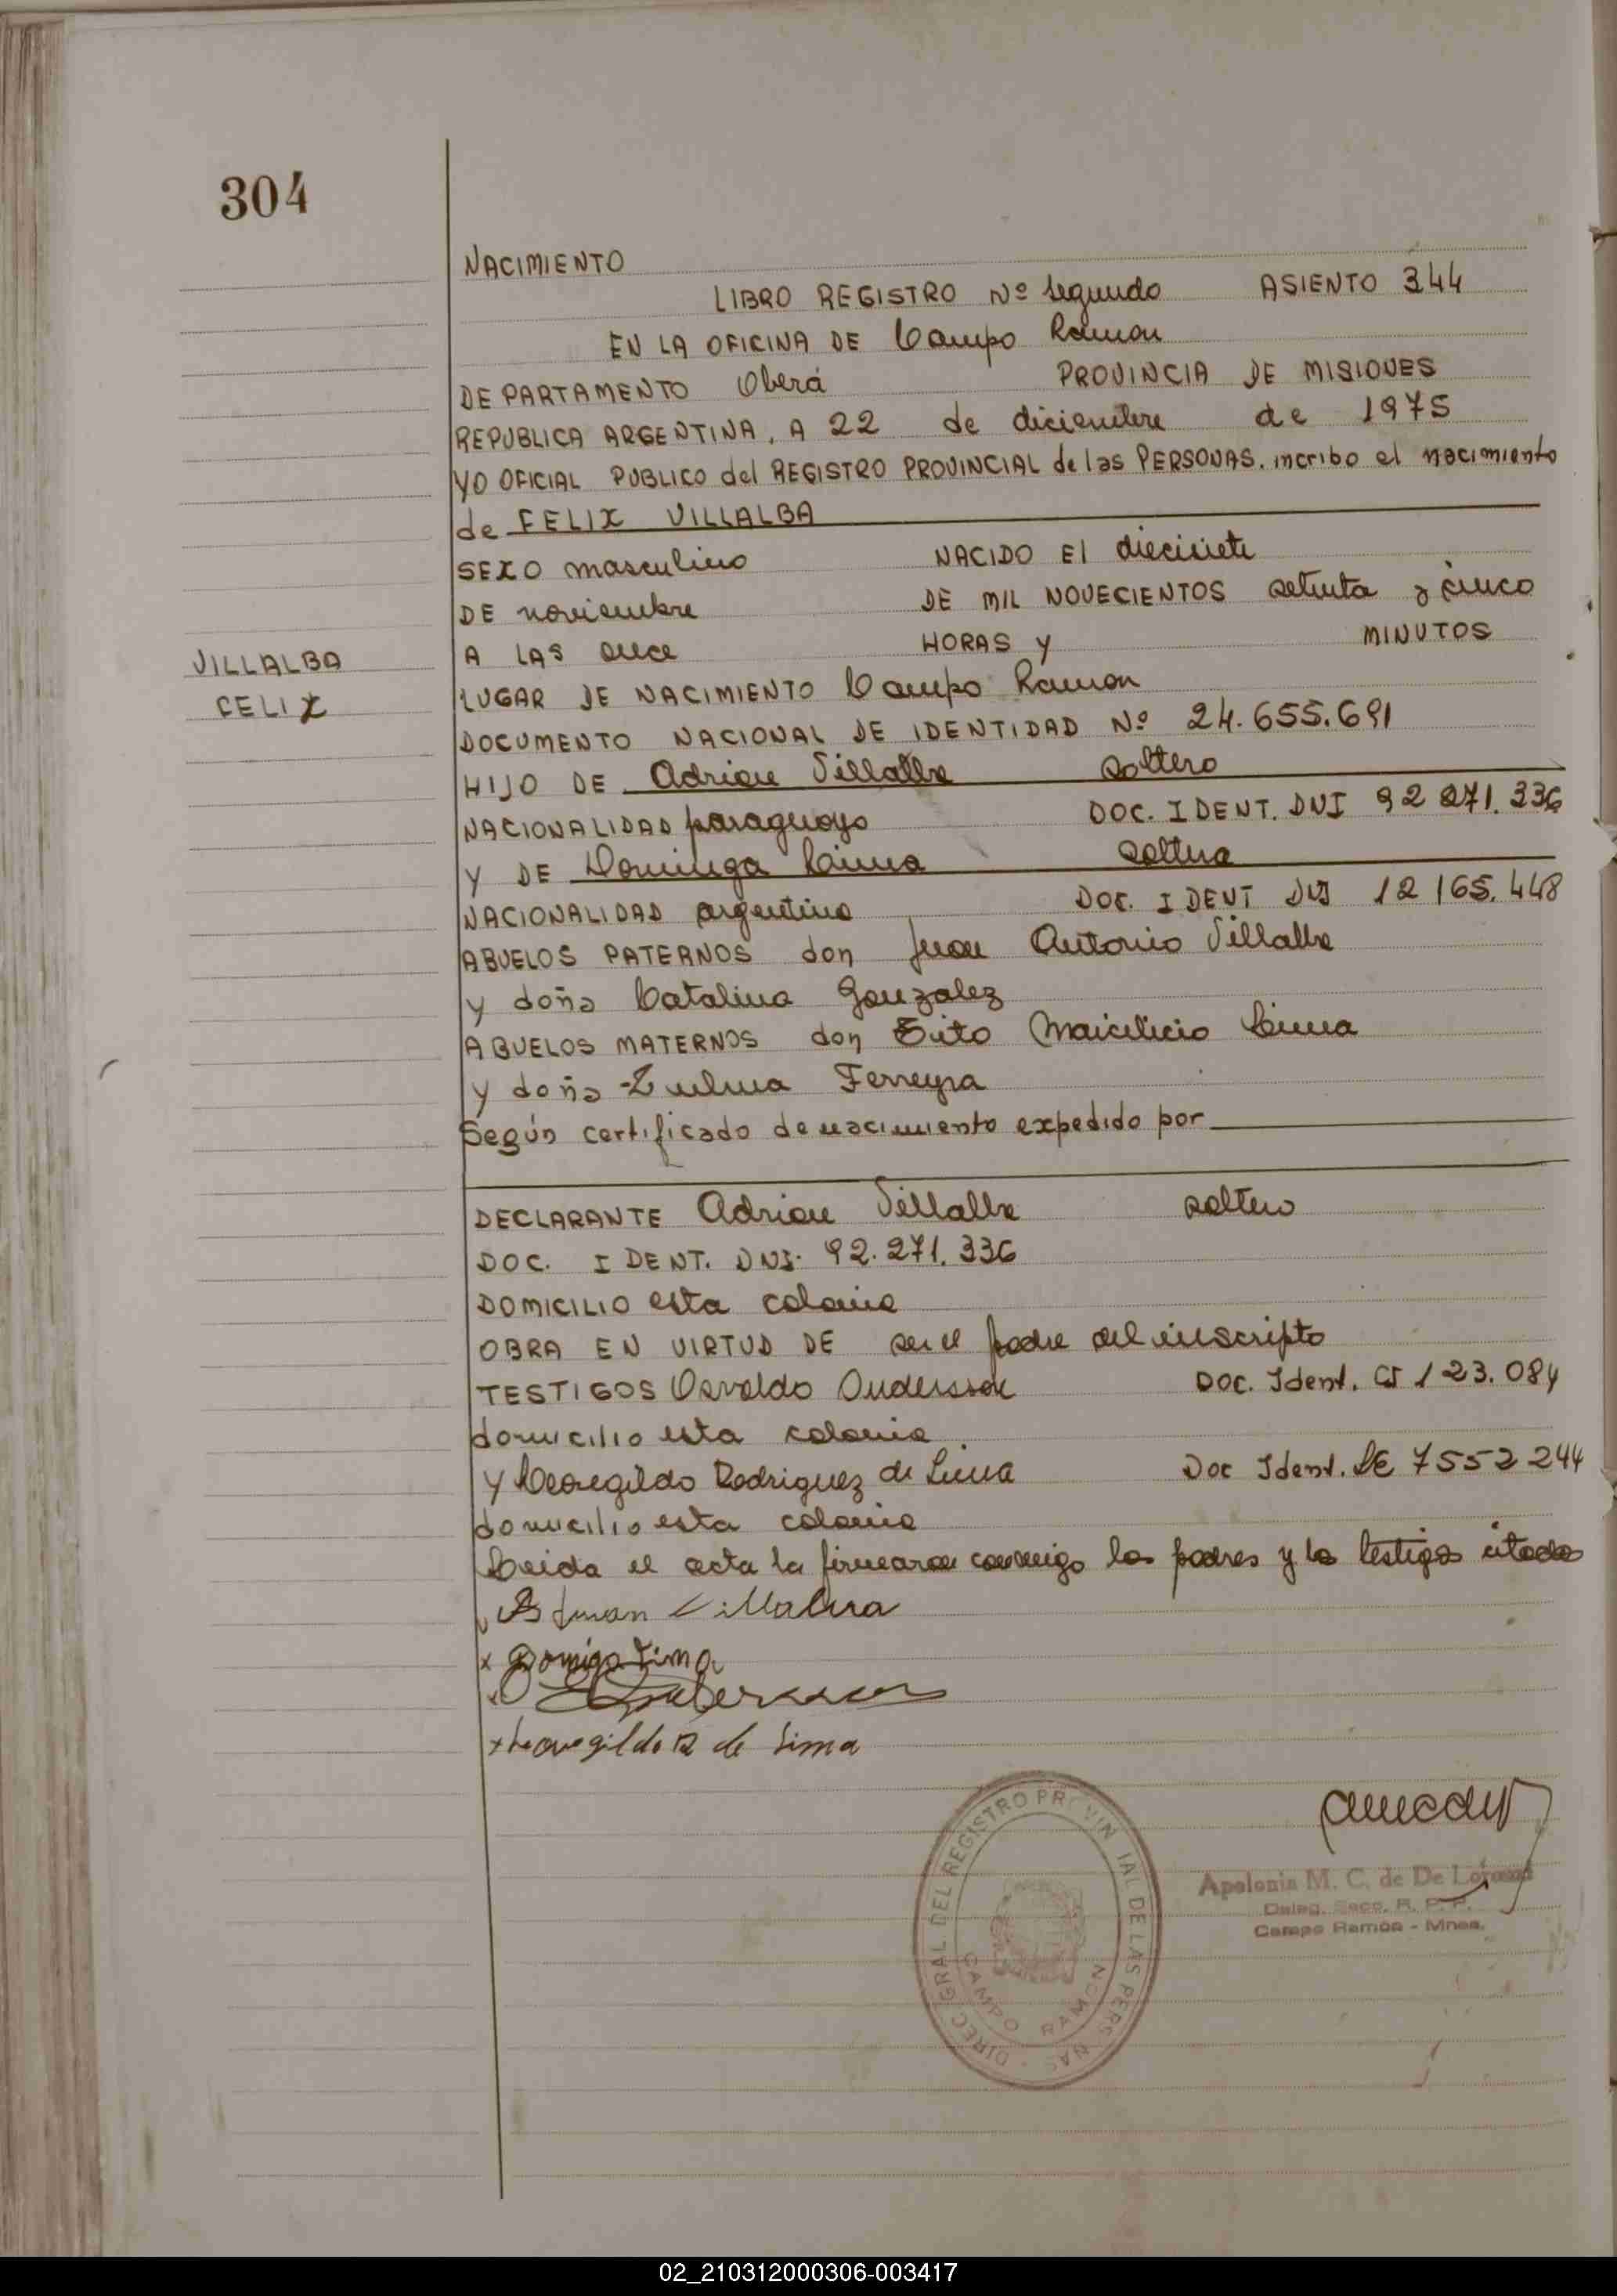 304
NACIMIENTO
LIBRO REGISTRO Nº segundo ASIENTO 344
EN LA OFICINA DE Campo Ramon
DEPARTAMENTO Oberá PROVINCIA DE MISIONES
REPUBLICA ARGENTINA, A 22 de diciembre de 1975
YO OFICIAL PUBLICO del REGISTRO PROVINCIAL de las PERSONAS. incribo el nacimiento
de FELIX VILLALBA
SEXO masculino NACIDO El diecisiete
DE noviembre DE MIL NOVECIENTOS setenta y cinco
A LAS once HORAS Y MINUTOS
VILLALBA
FELIX
LUGAR DE NACIMIENTO Campo Ramon
DOCUMENTO NACIONAL DE IDENTIDAD Nº 24.655.691
HIJO DE Adrian Villalba soltero
NACIONALIDAD paraguayo DOC. IDENT. DNI 92 271.336
Y DE Dominga Lima soltera
NACIONALIDAD argentina DOC. IDENT DNI 12 165.448
ABUELOS PATERNOS don Juan Antonio Villalba
y doña Catalina Gonzalez
ABUELOS MATERNOS don Lima
y doña Zulma Ferreyra
Según certificado de nacimiento expedido por
DECLARANTE Adrian Villalba soltero
DOC. IDENT. DNI: 92.271.336
DOMICILIO esta colonia
OBRA EN VIRTUD DE ser el padre del inscripto
TESTIGOS Osvaldo Andersson DOC. Ident. CI 123.084
domicilio esta colonia
Y Leovegildo Rodriguez de Lima Doc Ident. LE 7552244
domicilio esta colonia
Leida el acta la firmaron conmigo los padres y los testigos citados
Villalva
x Lima
x Andersson
x Leovegildo R de Lima
DIREC. GRAL DEL REGISTRO PROVINCIAL DE LAS PERSONAS
CAMPO RAMON
Apolonia M. C. de De Lorenzi
Deleg. Secc. R. P. P.
Campo Ramón - Mnes.
02_210312000306-003417